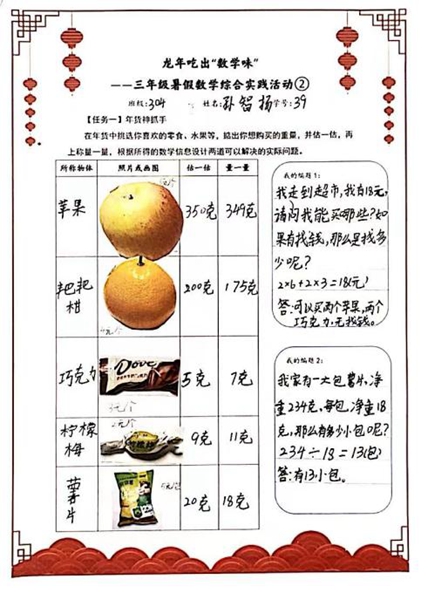 龙年吃出“数学味”
——三年级暑假数学综合实践活动②
班级:304 姓名:智扬 学号:39
【任务一】年货神抓手
在年货中挑选你喜欢的零食、水果等，掂出你想购买的重量，并估一估，再
上称量一量，根据所得的数学信息设计两道可以解决的实际问题。
所称物体 照片或画图 估一估 量一量
苹果 350克 349克
耙耙
柑 200克 175克
Dove
巧克力 5克 7克
3元/个
柠檬
梅 9克 11克
2元/个
薯
片 20克 18克
5元/包
我的编题1：
我走到超市，我有18元，
请问我能买哪些?如
果有找钱，那么是找多
少呢?
2×6+2×3=18(元)
答:可以买两个苹果,两个
巧克力.无找钱。
我的编题2：
我家有一大包薯片,净
重234克,每包净重18
克,那么有多少小包呢?
234÷18=13(包)
答:有13小包。